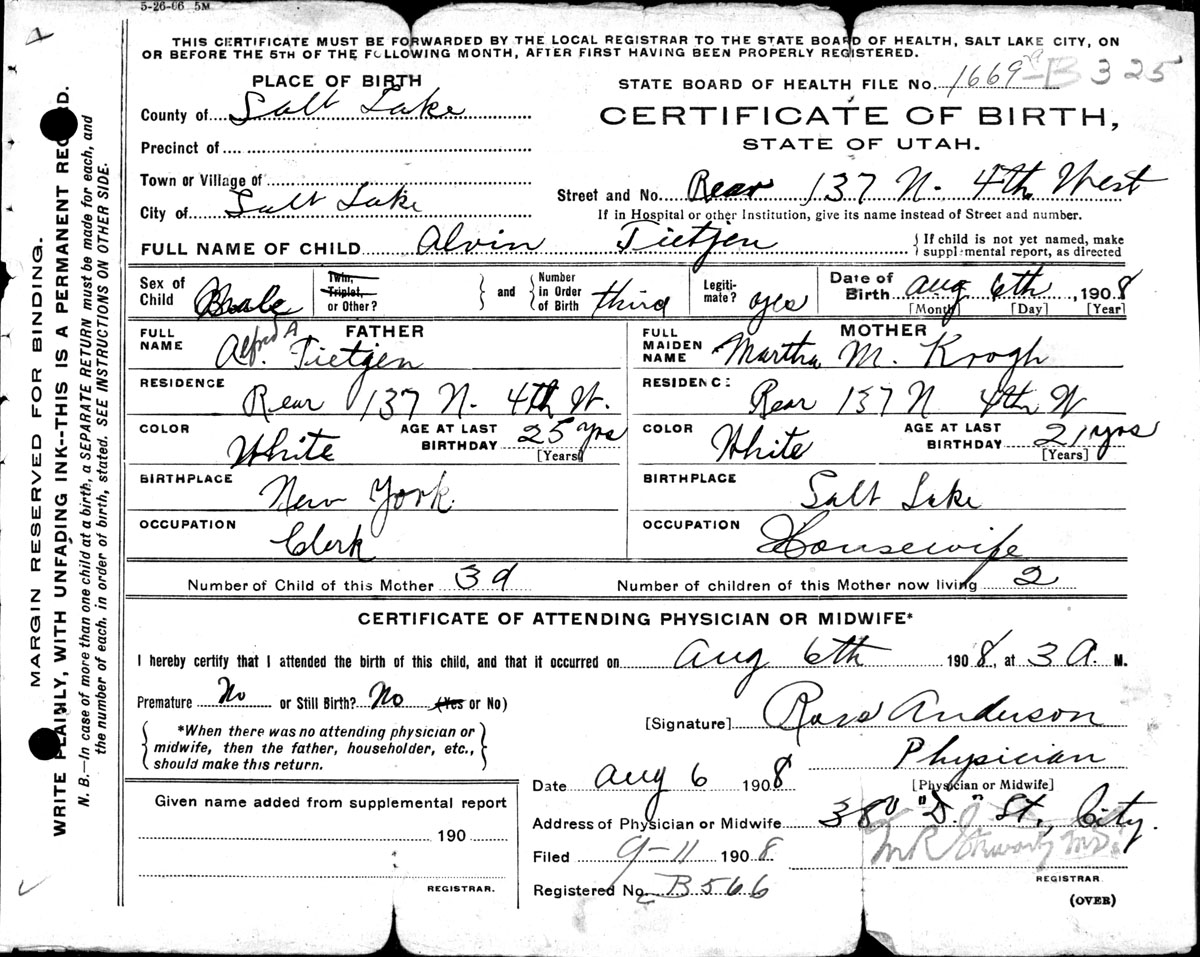 5-26-06 5M
THIS CERTIFICATE MUST BE FORWARDED BY THE LOCAL REGISTRAR TO THE STATE BOARD OF HEALTH, SALT LAKE CITY, ON
OR BEFORE THE 5TH OF THE FOLLOWING MONTH, AFTER FIRST HAVING BEEN PROPERLY REGISTERED.
PLACE OF BIRTH
STATE BOARD OF HEALTH FILE NO. 1669 B 325
County of Salt Lake
CERTIFICATE OF BIRTH,
STATE OF UTAH.
Precinct of
Town or Village of
Street and No. Rear 137 N. 4th West
City of Salt Lake
If in Hospital or other Institution, give its name instead of Street and number.
FULL NAME OF CHILD Alvin Tietjen
{ If child is not yet named, make
supplemental report, as directed
Sex of Child Male
Twin, Triplet, or Other?
and
Number in Order of Birth third
Legiti-mate? yes
Date of Birth Aug 6th, 1908
[Month] [Day] [Year]
FATHER
FULL NAME Alfred A. Tietjen
MOTHER
FULL MAIDEN NAME Martha M. Krogh
RESIDENCE Rear 137 N. 4th W.
RESIDENCE Rear 137 N 4th W
COLOR White
AGE AT LAST BIRTHDAY 25 yrs
[Years]
COLOR White
AGE AT LAST BIRTHDAY 21 yrs
[Years]
BIRTHPLACE New York.
BIRTHPLACE Salt Lake
OCCUPATION Clerk
OCCUPATION Housewife
Number of Child of this Mother 3d
Number of children of this Mother now living 2
CERTIFICATE OF ATTENDING PHYSICIAN OR MIDWIFE*
I hereby certify that I attended the birth of this child, and that it occurred on Aug 6th 1908, at 3 A. M.
Premature No or Still Birth? No (Yes or No)
[Signature] Ross Anderson
{ *When there was no attending physician or
midwife, then the father, householder, etc.,
should make this return. }
Physician
[Physician or Midwife]
Date Aug 6 1908
Given name added from supplemental report
190
REGISTRAR.
Address of Physician or Midwife 380 "D." St., City.
Filed 9-11 1908
REGISTRAR
Registered No. B566
(OVER)
MARGIN RESERVED FOR BINDING.
WRITE PLAINLY, WITH UNFADING INK--THIS IS A PERMANENT RECORD.
N. B.—In case of more than one child at a birth, a SEPARATE RETURN must be made for each, and
the number of each, in order of birth, stated. SEE INSTRUCTIONS ON OTHER SIDE.